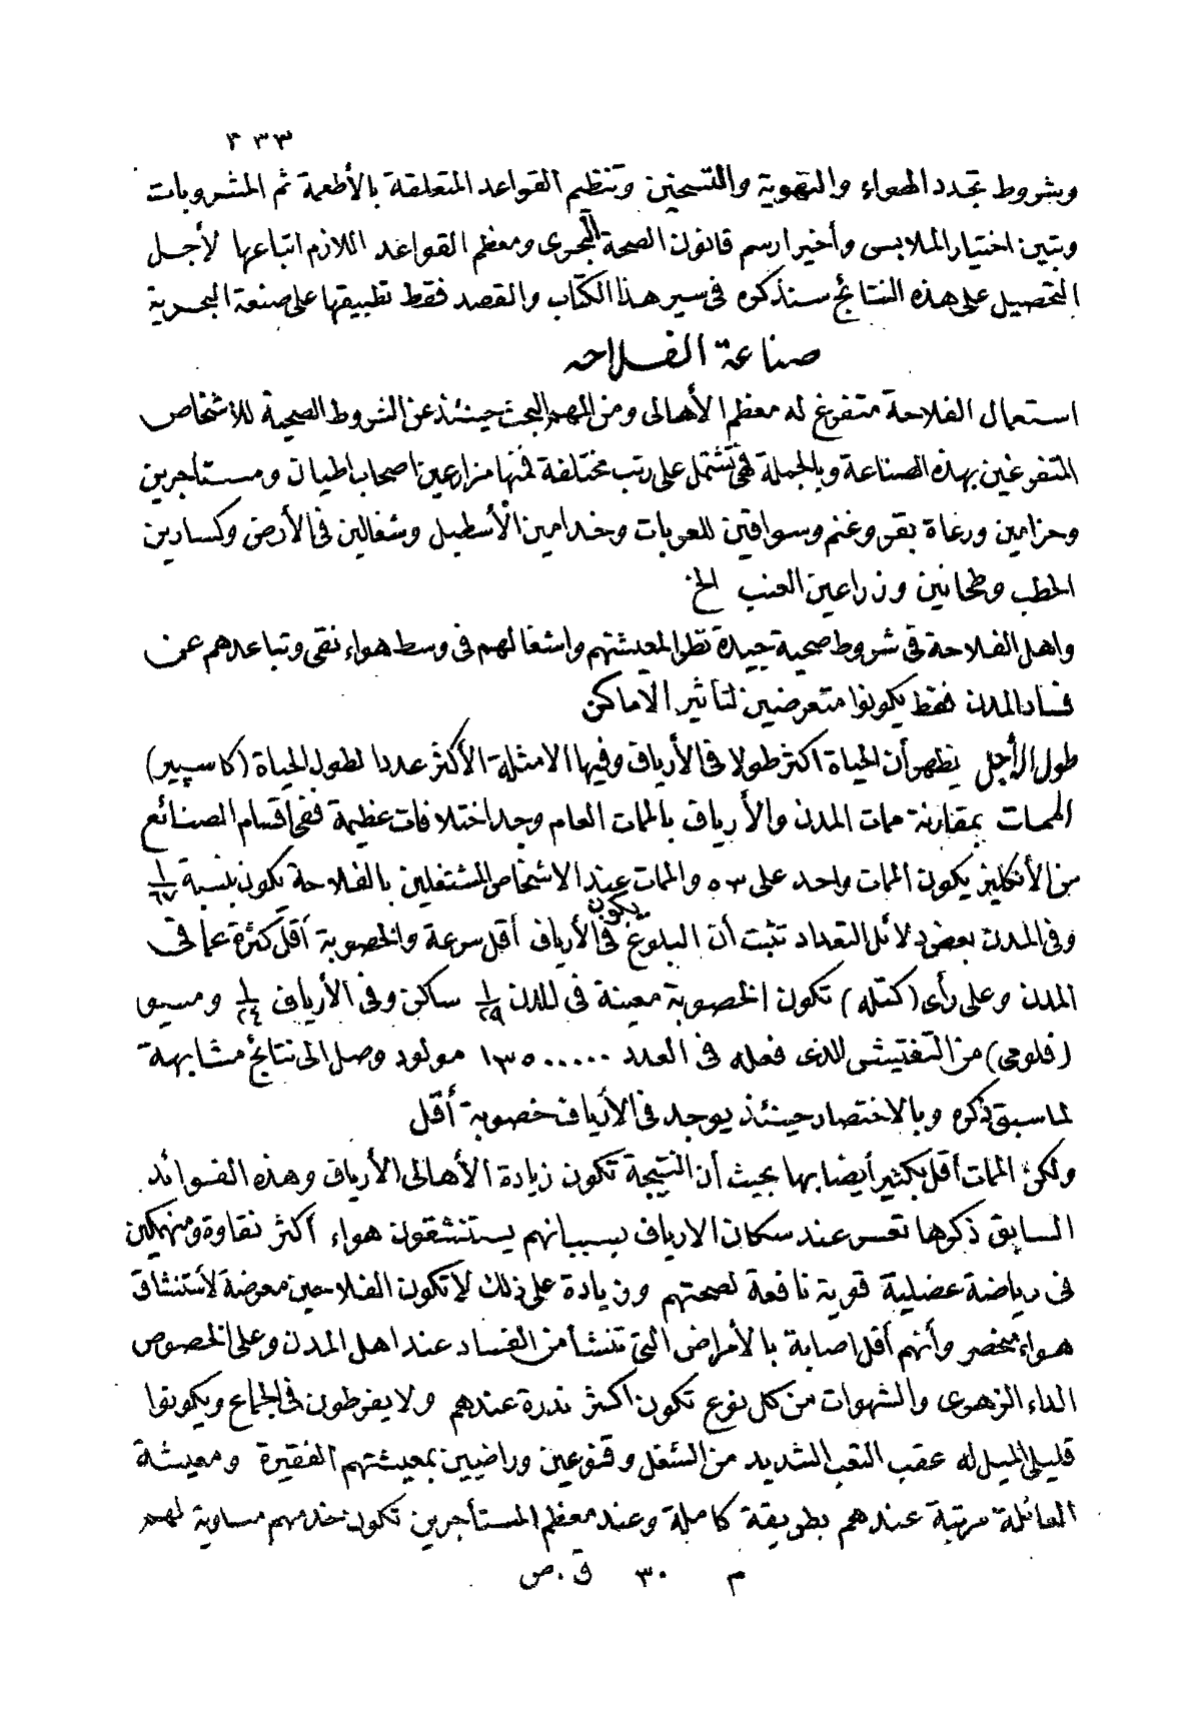 ٢٣٣
وبشروط تجدد الهواء والتهوية والتسخين وتنظم القواعد المتعلقة بالأطعمة ثم المشروبات
وتبين اختيار الملابس وأخيرا رسم قانون الصحة البحرى ومعظم القواعد اللازم اتباعها لأجل
التحصيل على هذه النتائج سنذكره فى سير هذا الكتاب والقصد فقط تطبيقها على صنعة البحرية
صناعة الفلاحه
استعمال الفلاحة متفرغ له معظم الأهالى ومن المهم البحث حينئذ عن الشروط الصحية للاشخاص
المتفرغين بهذه الصناعة وبالجملة فهى تشتمل على رتب مختلفة فمنها مزارعين اصحاب اطيان ومستأجرين
وحزامين ورعاة بقر وغنم وسواقين للعربات وخدامين الأسطبل وشغالين فى الأرض وكسارين
الحطب وطحانين وزراعين العنب الخ
واهل الفلاحة فى شروط صحية جيدة نظرا لمعيشتهم واشغالهم فى وسط هواء نقى وتباعدهم عن
فساد المدن فقط يكونوا متعرضين لتأثير الأماكن
طول الأجل يظهر أن الحياة اكثر طولا فى الأرياف وفيها الامثلة الأكثر عددا لطول الحياة (كاسپير)
الممات بمقارنة ممات المدن والأرياف بالممات العام وجد اختلافات عظيمة ففى أقسام الصنائع
من الأنكليز يكون الممات واحد على ٥٣ والممات عند الاشخاص المشتغلين بالفلاحة يكون بنسبة ١/٦٧
وفى المدن بعض دلائل التعداد تثبت أن البلوغ يكون فى الأرياف أقل سرعة والخصوبة أقل كثرة عما فى
المدن وعلى رأى (كتله) تكون الخصوبة معينة فى المدن ١/٢٩ ساكن وفى الأرياف ١/٢٤ ومسيو
(فلومى) من التفتيش الذى فعله فى العدد ١٣٥٠٠٠٠٠ مولود وصل الى نتائج مشابهة
لما سبق ذكره وبالاختصار حينئذ يوجد فى الأرياف خصوبة أقل
ولكن الممات أقل بكثير أيضا بها بحيث أن النتيجة تكون زيادة الأهالى الأرياف وهذه الفوائد
السابق ذكرها تفسر عند سكان الارياف بسبب انهم يستنشقون هواء أكثر نقاوة ومنهمكين
فى رياضة عضلية قوية نافعة لصحتهم وزيادة على ذلك لا تكون الفلاحين معرضة لأستنشاق
هواء منحصر وأنهم أقل اصابة بالأمراض التى تنشأ من الفساد عند اهل المدن وعلى الخصوص
الداء الزهرى والشهوات من كل نوع تكون اكثر ندرة عندهم ولا يفرطون فى الجماع ويكونوا
قليلى الميل له عقب التعب الشديد من الشغل وقنوعين وراضيين بمعيشتهم الفقيرة ومعيشة
العائلة مرتبة عندهم بطريقة كاملة وعند معظم المستأجرين تكون خدمهم مساوية لهم
م ٣٠ ق . ص